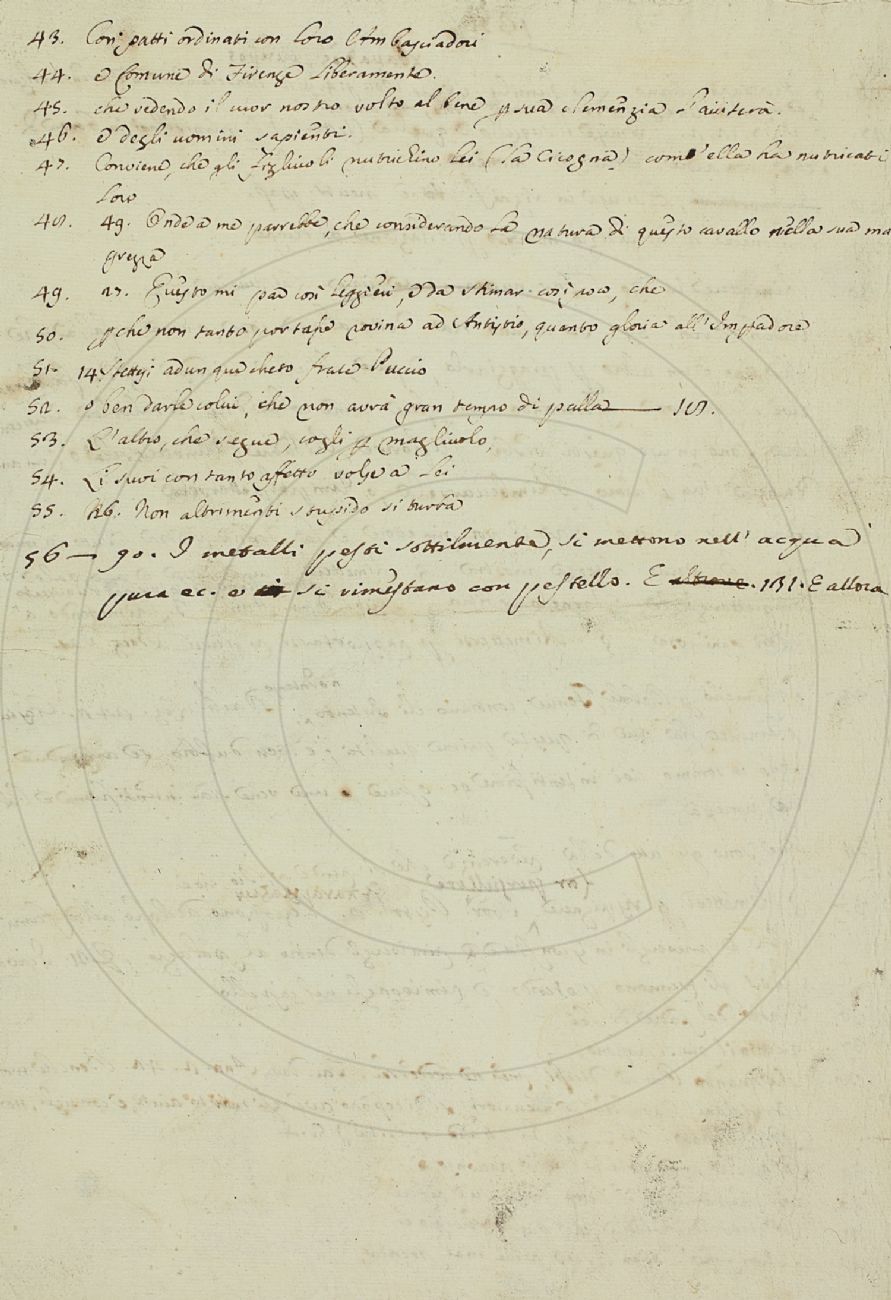 43. Con patti ordinati con loro Ambasciadori
44. e Comune di Firenze liberamente.
45. che vedendo il cuor nostro volto al bene p sua clemenzia l'aiuterà.
46. e degli uomini sapienti.
47. Conviene, che gli Figliuoli nutrichino lei (la Cicogna) com'ella ha nutricati
loro
48. 49. Onde a me parrebbe, che considerando la natura di questo cavallo nella sua ma
grezza
49. 27. Questo mi par così leggieri, e da stimar così poco, che
50. p che non tanto portasse rovina ad Antistio, quanto gloria all'Impadore
51. 14. Stettesi adunque cheto frate Puccio
52. e ben darle colui, che non avrà gran tempo di palla 18.
53. L'altro, che segue, cogli p magliuolo,
54. Li suoi con tanto affetto volse a lei
55. 26. Non altrimenti stupido si turba
56 — 90. I metalli pesti sottilmente, si mettono nell'acqua
pura ec. e si rimestano con pestello. E 131. E allora